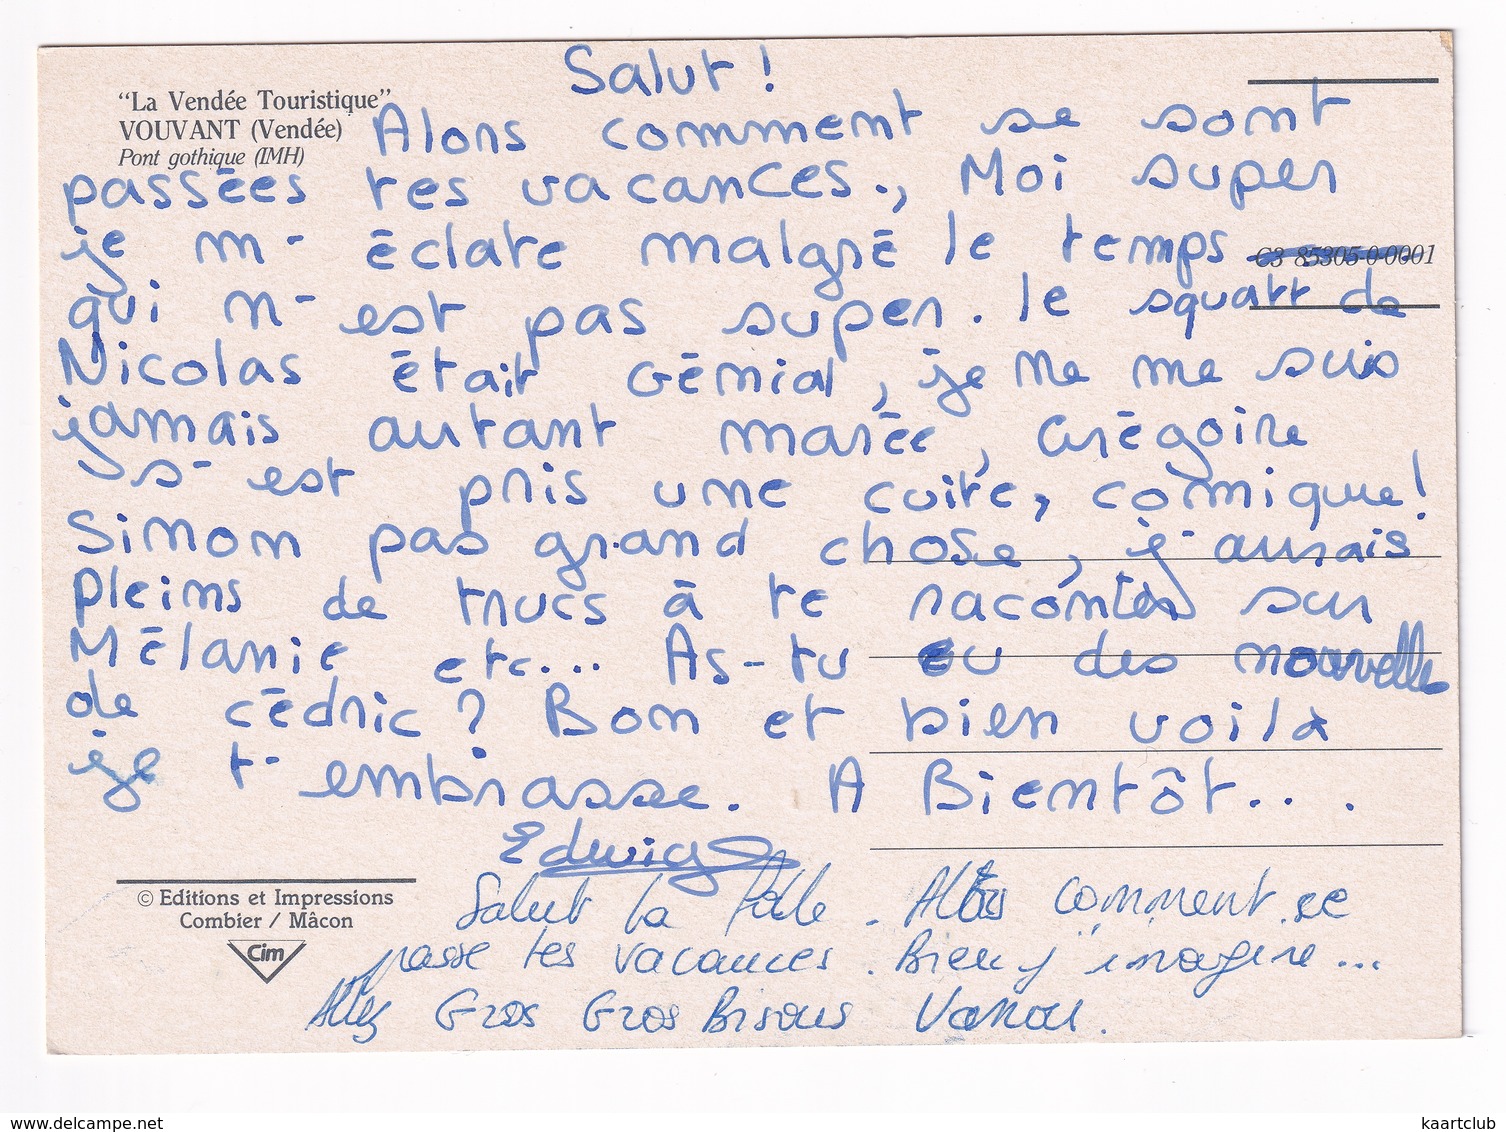 Salut !
"La Vendée Touristique"
VOUVANT (Vendée)
Pont gothique (IMH)
Alors comment se sont
passées tes vacances., Moi super
je m'éclate malgré le temps
C3 85305-0-0001
qui n'est pas super. le squatt de
Nicolas était génial, je ne me suis
jamais autant marée, Grégoire
s'est pris une cuite, comique !
Simon pas grand chose, j'aurais
pleins de trucs à te raconter sur
Mélanie etc... As-tu eu des nouvelle
de cédric ? Bon et bien voila
je t'embrasse. A Bientôt...
Edwige
© Editions et Impressions
Combier / Mâcon
Cim
Salut la . Alors comment se
passe tes vacances. Bien j'imagine...
Allez Gros Gros Bisous
delcampe.net
kaartclub